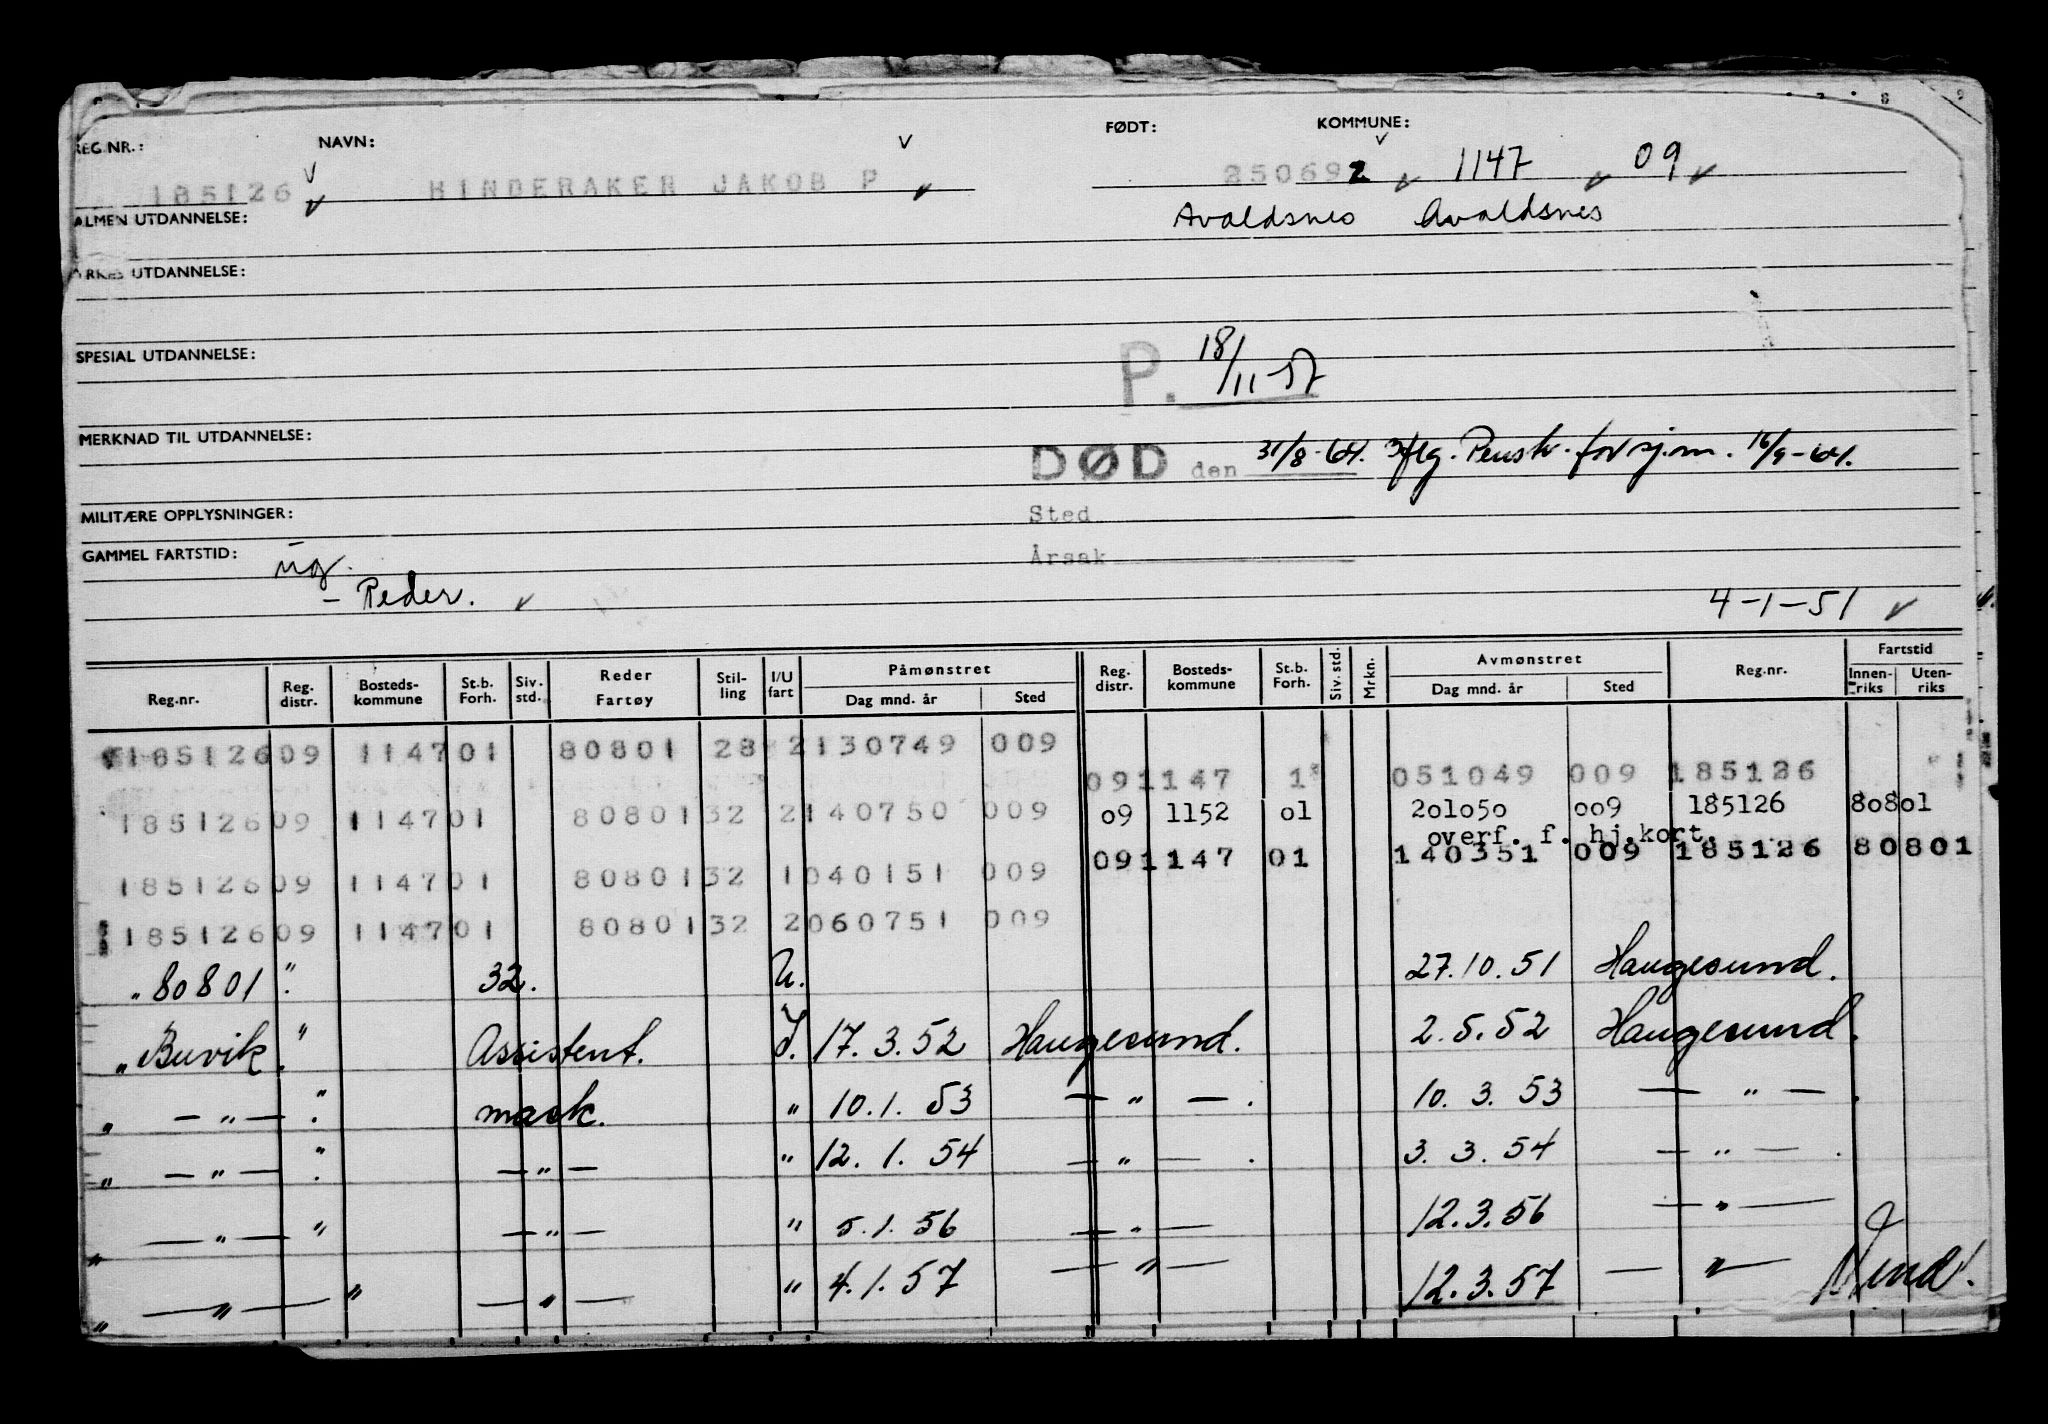 REG.NR.: NAVN: FØDT: KOMMUNE:
185126 HINDERAKER JAKOB P 250692 1147 09
ALMEN UTDANNELSE: Avaldsnes Avaldsnes
YRKES UTDANNELSE:
SPESIAL UTDANNELSE:
P. 18/11-57
MERKNAD TIL UTDANNELSE:
DØD den 31/8-64. iflg. Penstr. for sjøm. 16/9-64.
MILITÆRE OPPLYSNINGER: Sted
GAMMEL FARTSTID: Årsak
- Peder. 4-1-51
Reg.nr. Reg. distr. Bosteds- kommune St.b. Forh. Siv. std. Reder Fartøy Stil- ling I/U fart Påmønstret Dag mnd. år Sted Reg. distr. Bosteds- kommune St.b. Forh. Siv. std. Mrkn. Avmønstret Dag mnd. år Sted Reg.nr. Fartstid Innen- riks Uten- riks
185126 09 1147 01 80801 28 2 130749 009
09 1147 1 051049 009 185126
185126 09 1147 01 80801 32 2 140750 009 09 1152 01 201050 009 185126 80801
overf. f. hj.kort.
09 1147 01 140351 009 185126 80801
185126 09 1147 01 80801 32 1 040151 009
185126 09 1147 01 80801 32 2 060751 009
" 80801 " 32. U. 27.10.51 Haugesund.
" Buvik " Assistent. I. 17.3.52 Haugesund. 2.5.52 Haugesund.
" — " — " mask. " 10.1.53 — " — . 10.3.53 — " — .
" — " — " — " — " 12.1.54 — " — . 3.3.54 — " — .
" — " — " — " — " 5.1.56 — " — 12.3.56 — " —
" — " — " — " — " 4.1.57 — " — 12.3.57 — " — Vend!